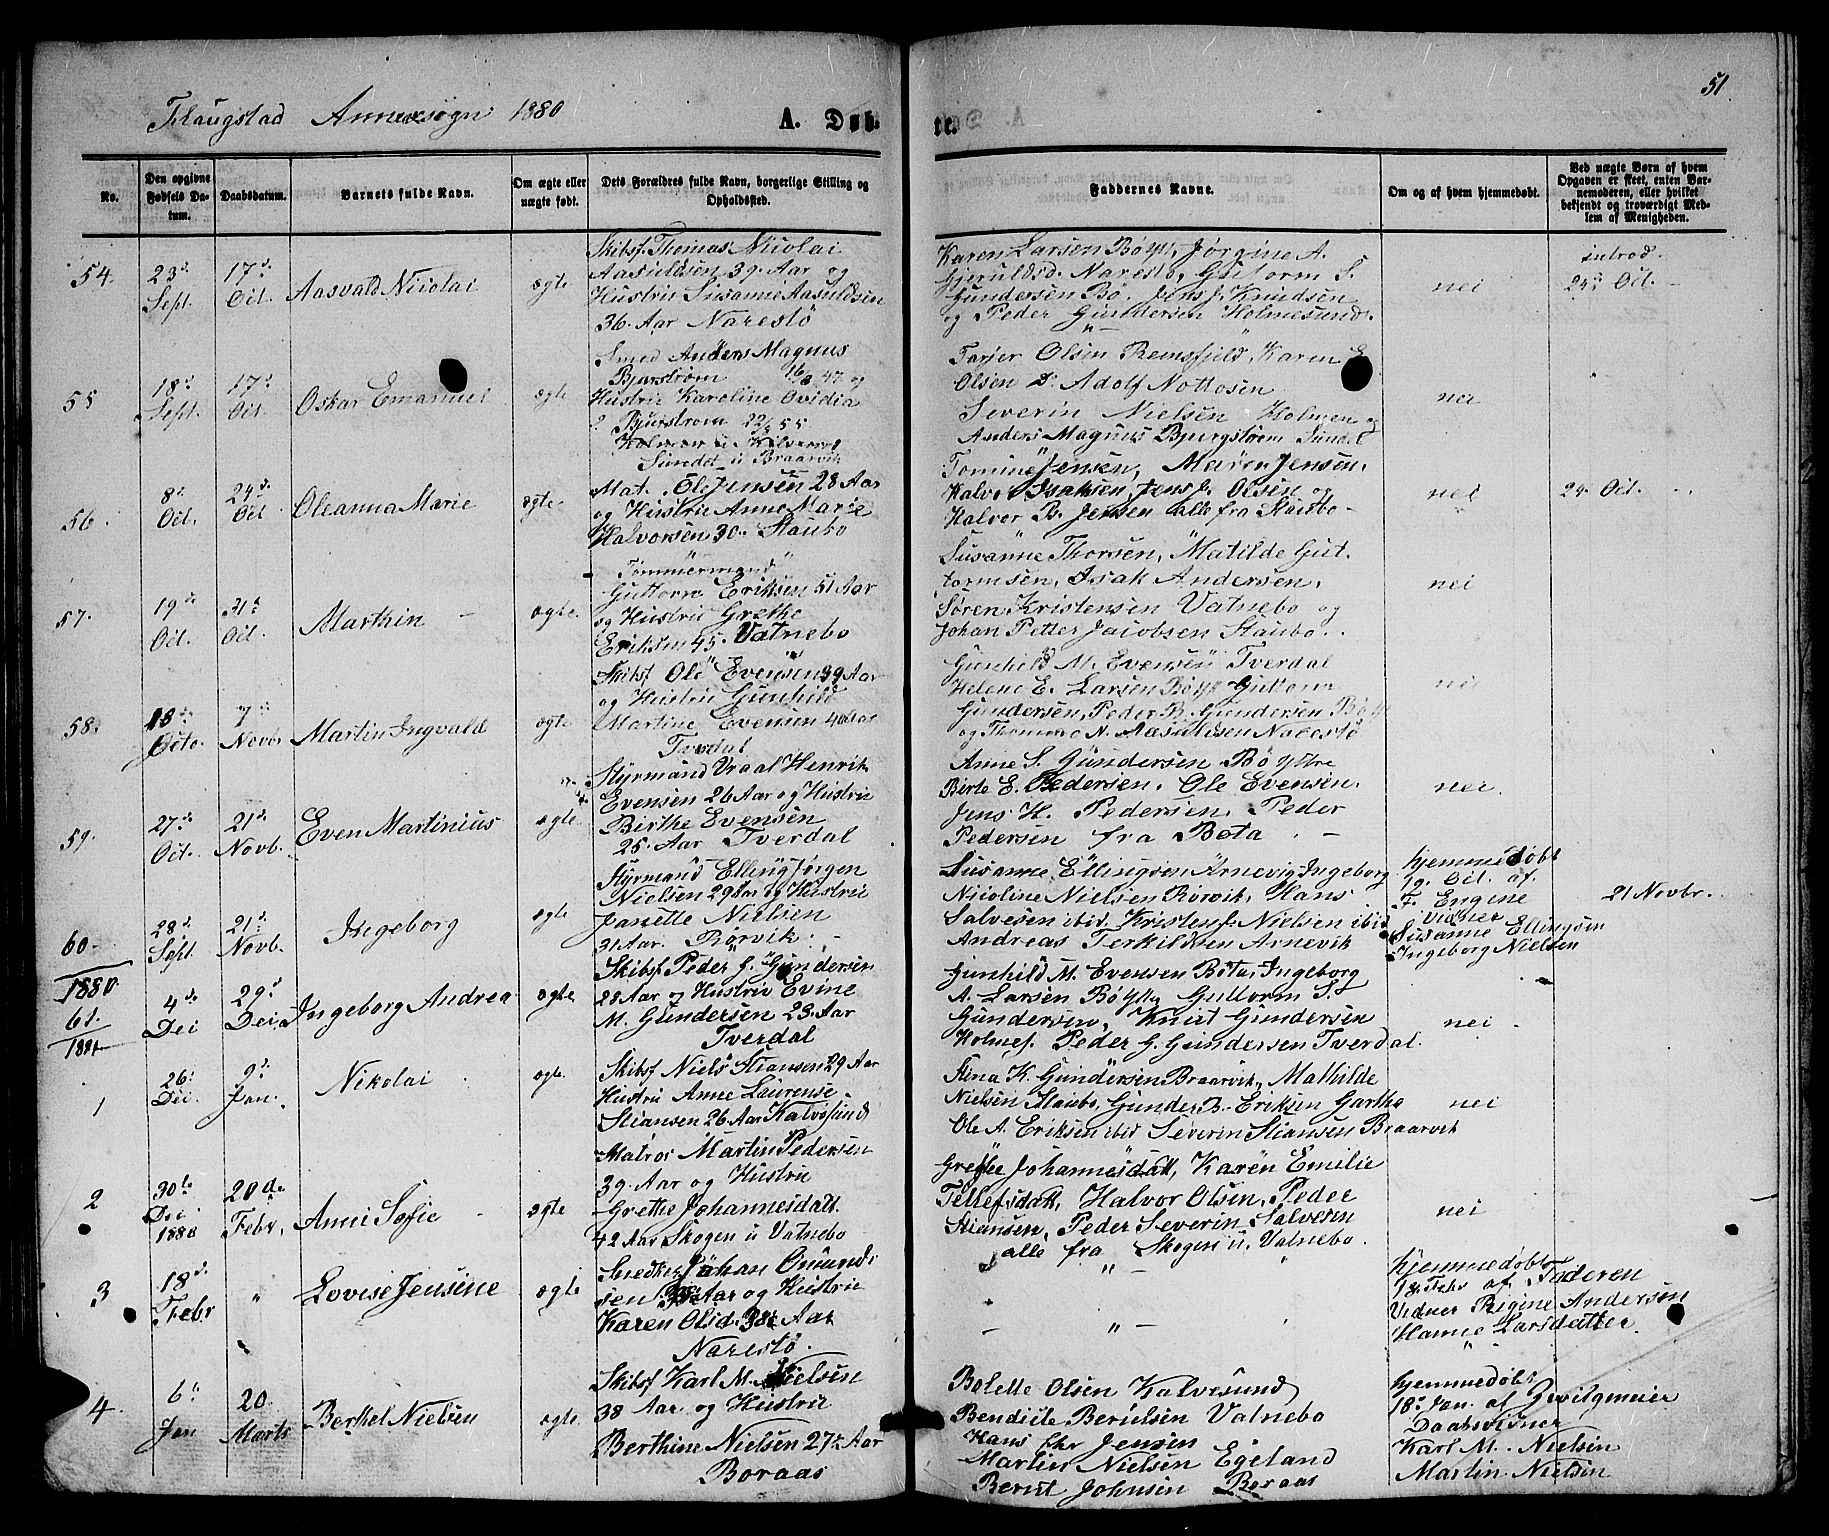 51.
Flaugstad Annexsogn 1880
A. Døb
te.
No.
Den opgivne Fødsels Da-tum.
Daabsdatum.
Barnets fulde Navn.
Om ægte eller uægte født.
Dets Forældres fulde Navn, borgerlige Stilling og Opholdssted.
Faddernes Navne.
Om og af hvem hjemmedøbt.
Ved uægte Børn af hvem Opgaven er skeet, enten Bar-nemoderen, eller hvilket bekjendt og troværdigt Med-lem af Menigheden.
54. 23d Sept. 17d Oct. Aasvald Nicolai ægte
Skibsf. Thomas Nicolai
Aasuldsen 39 Aar og
Hustru Susanne Aasuldsen
36 Aar Narestö
Karen Larsen Bøylle, Jørgine A.
Gjeruldsd. Narestø, Guttorm S.
Gundersen Bø. Jens J. Knudsen
og Peder Gundersen Holmesund.
nei
introd.
24d Oct.
55 18d Sept. 17d Oct. Oskar Emanuel ægte
Smed Anders Magnus
Bjurstrøm 16/8 47 og
Hustru Karoline Ovidia
Bjurstrøm 22/5 55
Sundet u Braarvik
Tarjer Olsen Remsfjeld, Karen E
Olsen d: Adolf Nottosen
Severin Nielsen Holmen og
Anders Magnus Bjurgstøem Sundet
nei
56. 8d Oct. 24d Oct Oleanna Marie ægte
Mat. Ole Jensen 28 Aar
og Hustru Anne Marie
Halvorsen 30. Staubo
Tomine Jensen, Maren Jensen,
Halvor Isaksen, Jens J. Olsen og
Halvor B. Jensen alle fra Staubo
nei
24 Oct.
57. 19de Oct. 31t Oct. Marthin ægte
Tømmermand
Guttorm Eriksen 51 Aar
og Hustru Grethe
Eriksen 45. Vatnebo
Susanne Thorsen, Matilde Gut.
tormsen, Isak Andersen,
Søren Kristensen Vatnebo og
Johan Petter Jacobsen Staubo.
nei
58. 18de Octo. 7de Novbr Martin Ingvald ægte
Skibsf Ole Evensen 39 Aar
og Hustru Gunhild
Martine Evensen 40 Aar
Tverdal
Gunhild M. Evensen Tverdal
Helene E. Larsen Bøyl Guttorm
Gundersen, Peder B. Gundersen
og Thomas N. Aasuldsen Narestø
nei
59. 27de Oct. 21d Novb. Even Martinius ægte
Styrmand Vraal Henrik
Evensen 26 Aar og Hustru
Birthe Evensen
25 Aar Tverdal
Anne S. Gundersen Bøylle
Birte E. Pedersen. Ole Evensen.
Jens H. Pedersen, Peder
Pedersen fra Bota
nei.
60. 28d Sept. 21d Novb. Ingeborg ægte
Styrmand Elling Jørgen
Nielsen 29 Aar og Hustru
Janette Nielsen
31 Aar. Rørvik.
Susanne Ellingsen Arnevig Ingeborg
Nicoline Nielsen Rørvik, Hans
Salvesen ibid, Kristen J. Nielsen ibid
Andreas Terkildsen Arnevik
hjemmedøbt
19. Oct. af
F. Engine
Vidner
Susanne Ellingsen
Ingeborg Nielsen
21 Novbr.
1880
61. 4de Dec 29d Dec. Ingeborg Andrea ægte
Skibsf Peder G. Gundersen
28 Aar og Hustru Evine
M. Gundersen 23 Aar
Tverdal
Gunhild M. Evensen Bota, Ingeborg
A. Larsen Bøylle Guttorm S.
Gundersen, Knut Gundersen
Holmes. Peder G. Gundersen Tverdal.
nei
1881
1 26: Dec. 9d Jan. Nikolai ægte
Skibsf Niels Stiansen 29 Aar
Hustru Anne Laurense
Stiansen 26 Aar Kalvøsund
Stina K. Gundersen Braarvik, Mathilde
Nielsen Staubo, Gunder B. Eriksen Gartha
Ole A. Eriksen ibid Severin Stiansen Braarvik
nei
2 30te Dec 1880 20de Febr. Anne Sofie ægte
Matros Martin Pedersen
39 Aar og Hustru
Grethe Johannesdatt.
42 Aar Skogen u Vatnebo
Grethe Johannesdatt, Karen Emilie
Tellefsdatt, Halvor Olsen, Peder
Stiansen, Peder Severin Salvesen
alle fra Skogen u. Vatnebo.
nei
3 18d Febr " Lovise Jensine ægte
Snedker Johan Omunds
sen Aar og Hustru
Karen Olsd. 38 Aar
Narestø.
"
hjemmedøbt
18 Febr af Faderen
Vidner Regine Anderson
Hanne Larsdatter.
4. 6te Jan 20 Marts Berthel Nielsen ægte
Skibsf Karl M. Nielsen
38 Aar og Hustru
Berthine Nielsen 27 Aar
Boraas
Bolette Olsen Kalvesund
Bendicte Berntsen Vatnebo
Hans Chr Jensen
Martin Nielsen Egeland
Bernt Johnsen Boraas
hjemmedøbt
18. Jan. af Zwilgmeier
Daabsvidner
Karl M. Nielsen
Martin Nielsen